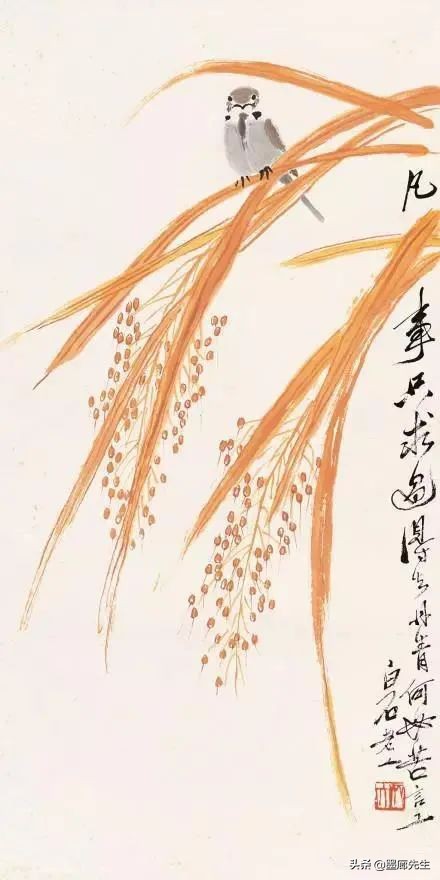 凡事只求過得去丹青何必苦言工
白石老人
头条 @墨廊先生